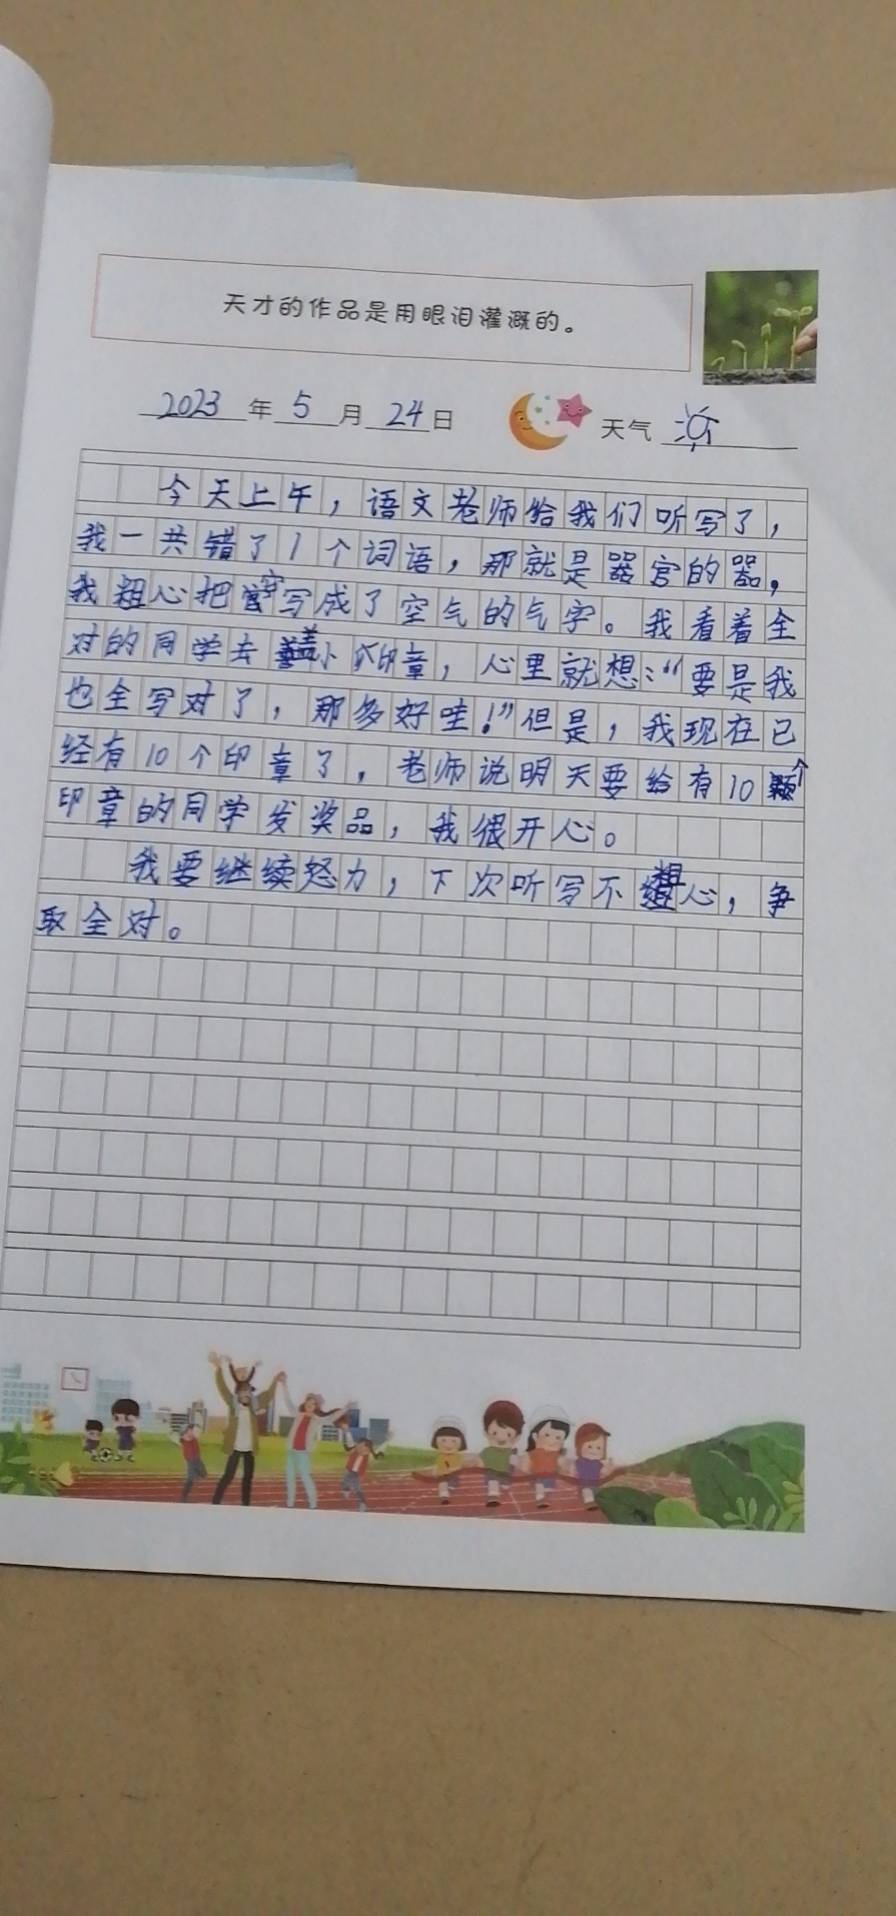 天才的作品是用眼泪灌溉的。
2023年5月24日 天气
今天上午，语文老师给我们听写了，
我一共错了1个词语，那就是器官的器，
我粗心把它写成了空气的气字。我看着全
对的同学去盖小印章，心里就想：“要是我
也全写对了，那多好哇！”但是，我现在已
经有10个印章了，老师说明天要给有10个
印章的同学发奖品，我很开心。
我要继续努力，下次听写不粗心，争
取全对。